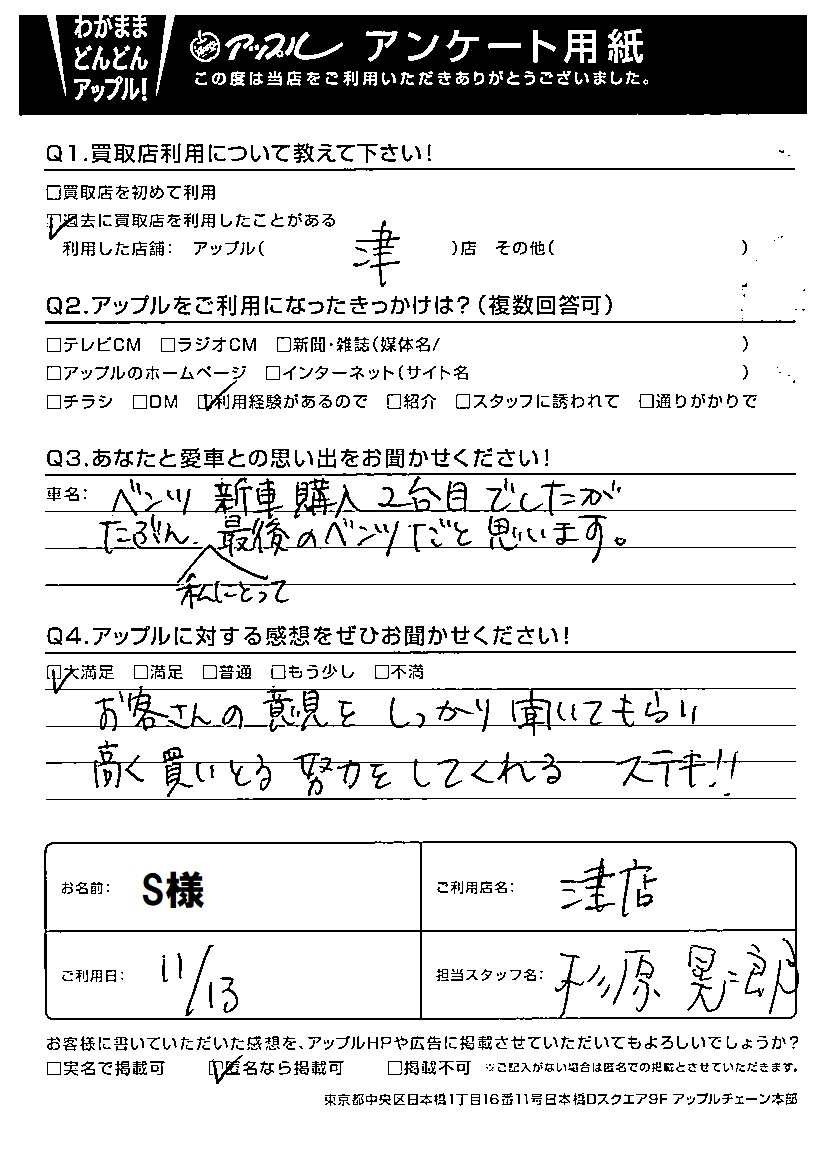 わがまま
どんどん
アップル!
アップル アンケート用紙
この度は当店をご利用いただきありがとうございました。
Q1.買取店利用について教えて下さい!
□買取店を初めて利用
☑過去に買取店を利用したことがある
利用した店舗: アップル( 津 )店 その他( )
Q2.アップルをご利用になったきっかけは?(複数回答可)
□テレビCM □ラジオCM □新聞・雑誌(媒体名/ )
□アップルのホームページ □インターネット(サイト名 )
□チラシ □DM ☑利用経験があるので □紹介 □スタッフに誘われて □通りがかりで
Q3.あなたと愛車との思い出をお聞かせください!
車名: ベンツ 新車購入2台目でしたが
たぶん、最後のベンツだと思います。
私にとって
Q4.アップルに対する感想をぜひお聞かせください!
☑大満足 □満足 □普通 □もう少し □不満
お客さんの意見をしっかり聞いてもらい
高く買いとる努力をしてくれる ステキ!!
お名前: S様 ご利用店名: 津店
ご利用日: 11/13 担当スタッフ名: 杉原 晃二朗
お客様に書いていただいた感想を、アップルHPや広告に掲載させていただいてもよろしいでしょうか?
□実名で掲載可 ☑匿名なら掲載可 □掲載不可 ※ご記入がない場合は匿名での掲載とさせていただきます。
東京都中央区日本橋1丁目16番11号日本橋Dスクエア9F アップルチェーン本部